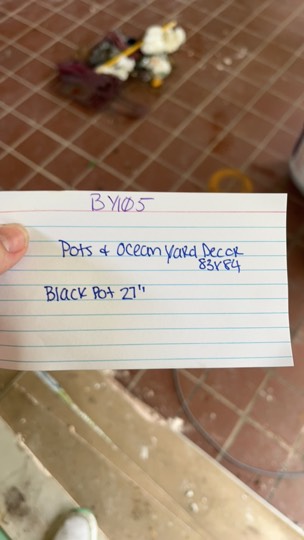 BY105
Pots & Ocean Yard Decor
83x84
Black Pot 27"